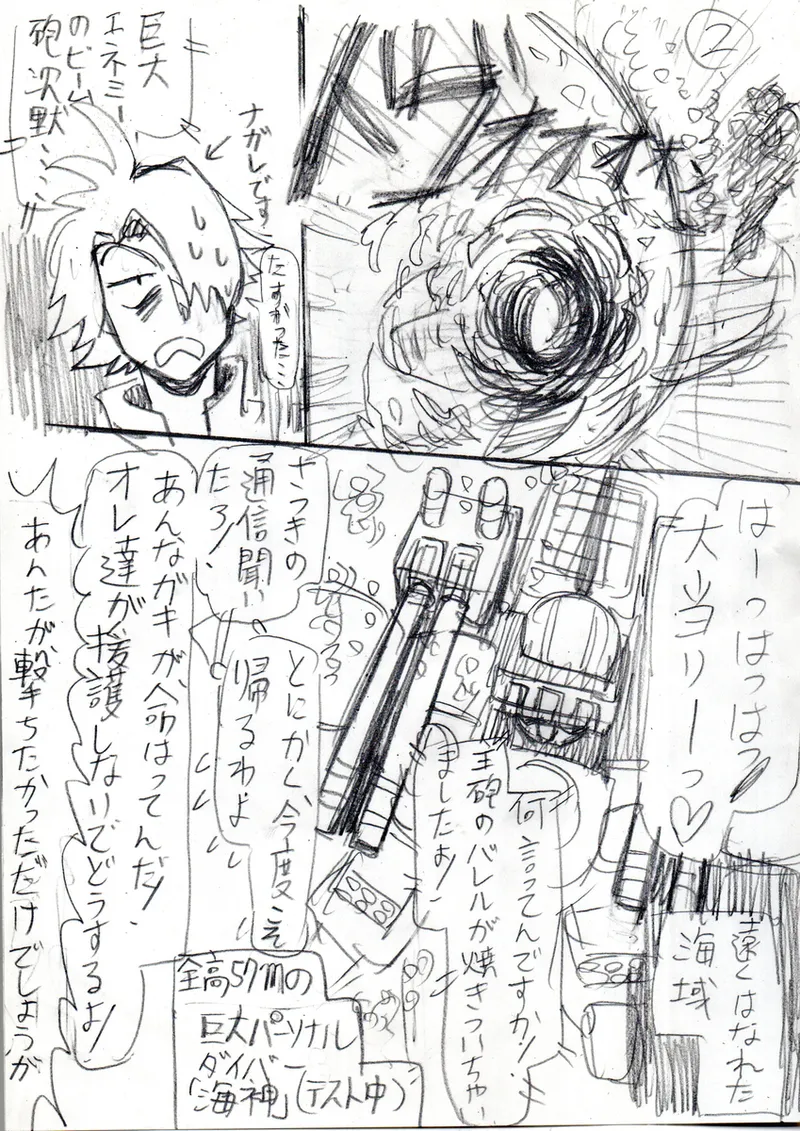 ②
バウオオオォ
巨大
エネミー
のビーム
砲沈黙……!!
ナガレです
たすかった…
はーっはっはっ
大当リーっ♡
遠くはなれた
海域
何言ってんですか!
主砲のバレルが焼きついちゃい
ましたよ!
さっきの
通信聞い
たろ!
あんなガキが命はってんだ!
オレ達が援護しないでどうするよ!
とにかく、今度こそ
帰るわよ
あんたが撃ちたかっただけでしょうが
全高57mの
巨大パーソナル
ダイバー
「海神」(テスト中)